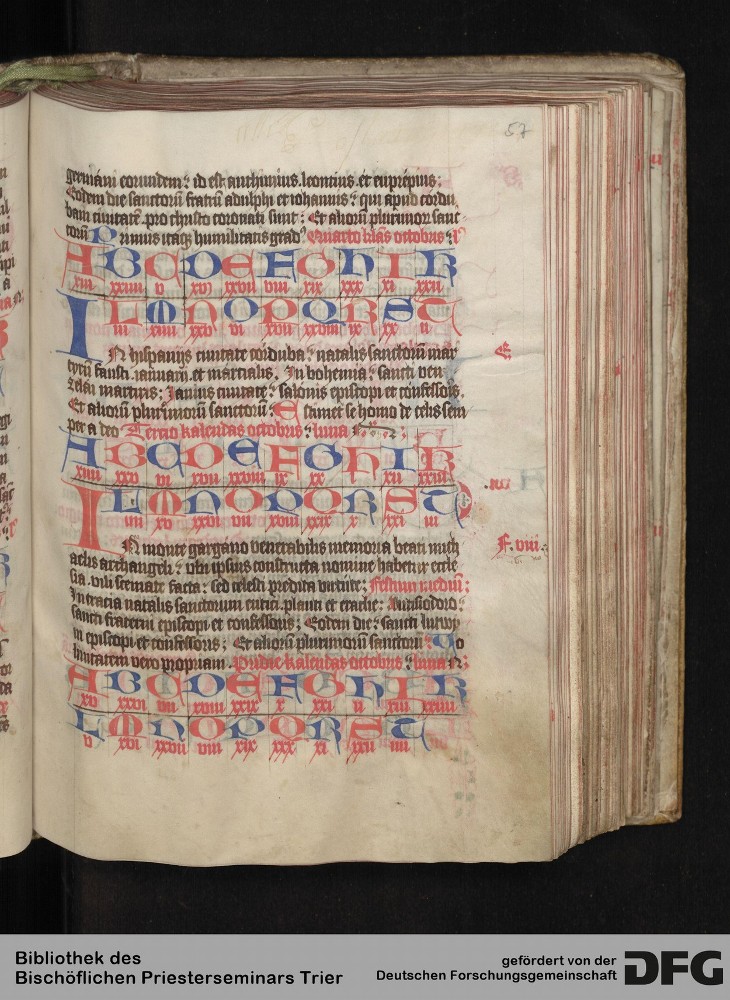 57
germani eorundem: id est anthimus. leontius. et euprepius:
Eodem die sanctorū fratrū adulphi et iohannis: qui apud cordu
bam ciuitatē. pro christo coronati sunt: Et aliorū plurimor sanc
torū Primus itaqz humilitatis gradꝰ Quarto kl'as octobris:
A B C D E F G H I K
xiii xxiiii v xvi xxvii viii xix xxx xi xxii
L M N O P Q R S T
iii xiiii xxv vi xvii xxviii ix xx ii
In hispanijs ciuitate corduba: natalis sanctorū mar
tyrū fausti. ianuarii. et martialis. In bohemia: sancti ven
zelai martiris: Ianius ciuitate: salonis episcopi et confessoris.
Et aliorū plurimorū sanctorū: Estimet se homo de celis sem
per a deo Tercio kalendas octobris: luna
A B C D E F G H I K
xiiii xxv vi xvii xxviii ix xx i xii xxiii
L M N O P Q R S T
iiii xv xxvi vii xviii xxix x xxi iii
In monte gargano venerabilis memoria beati mich
aelis archangeli: vbi ipsius consecrata nomine habetur eccle
sia. vili scemate facta: sed celesti predita virtute: Festum mediū:
In tracia natalis sanctorum eutici. planti et eracle: Autisiodoro:
sancti fraterni episcopi et confessoris: Eodem die: sancti lutwini
episcopi et confessoris: Et aliorū plurimorū sanctorū: Vo
luntatem vero propriam. Pridie kalendas octobris: luna
A B C D E F G H I K
xv xxvi vii xviii xxix x xxi ii xiii xxiiii
L M N O P Q R S T
v xvi xxvii viii xix xxx xi xxii iiii
E
F. viii.
Bibliothek des
Bischöflichen Priesterseminars Trier
gefördert von der
Deutschen Forschungsgemeinschaft
DFG